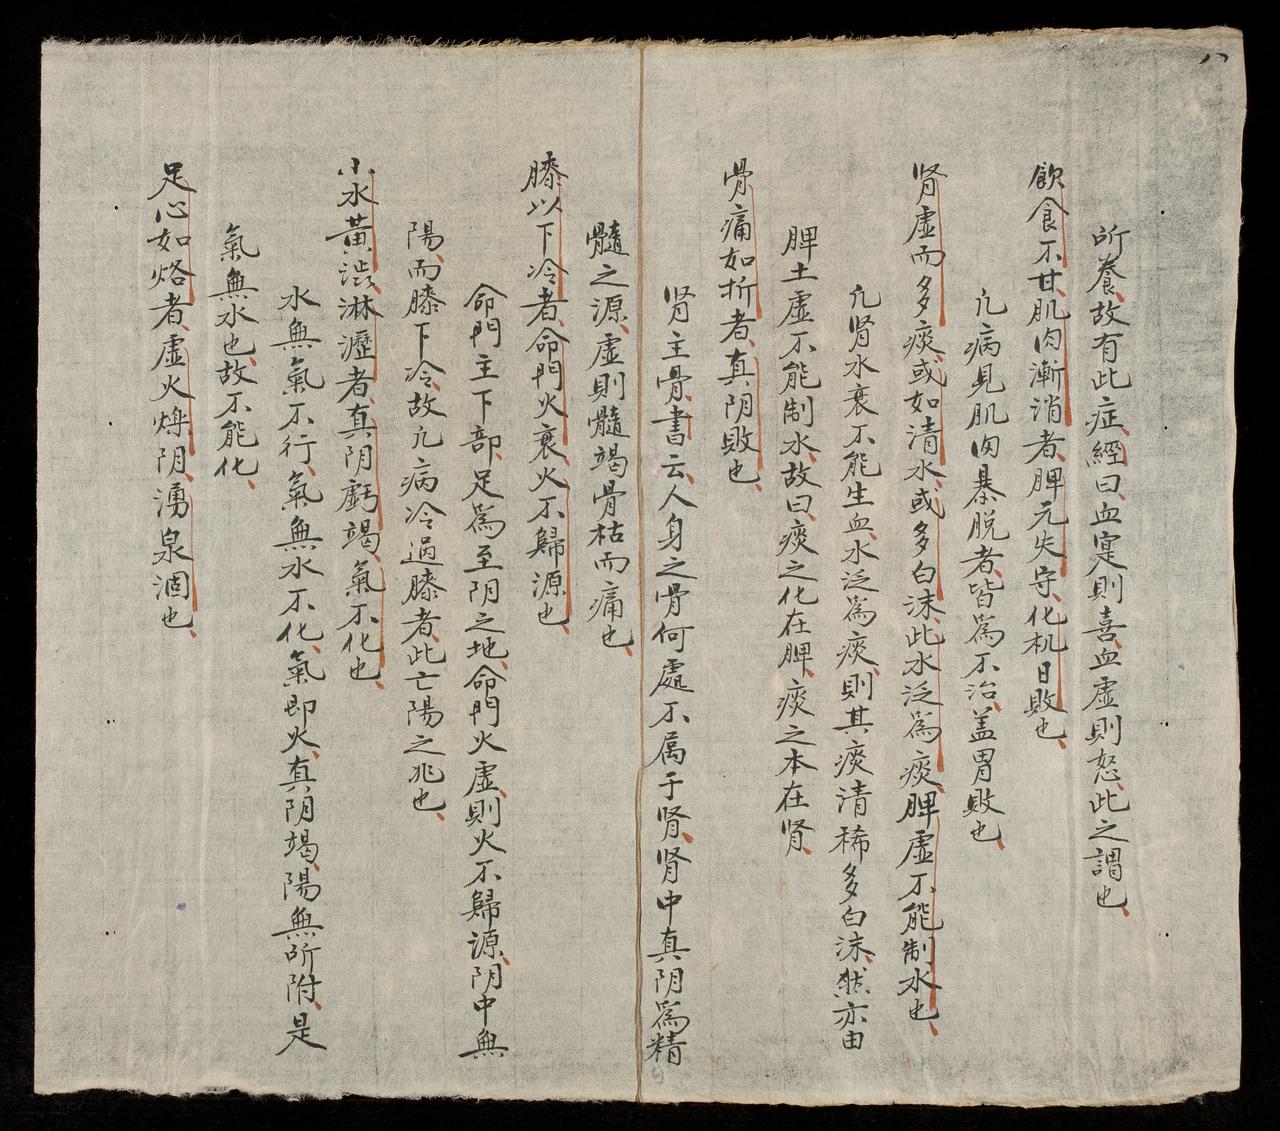 八
所養、故有此症、經曰、血寔則喜、血虛則怒、此之謂也、
飲食不甘、肌肉漸消者、脾元失守、化机日敗也、
凢病見肌肉暴脱者、皆爲不治、盖胃敗也、
肾虛而多痰、或如清水、或多白沫、此水泛爲痰、脾虛不能制水也、
凢肾水衰不能生血、水泛爲痰、則其痰清稀多白沫、然亦由
脾土虛不能制水、故曰、痰之化在脾、痰之本在肾、
骨痛如折者、真阴敗也、
肾主骨、書云、人身之骨何處不属于肾、肾中真阴爲精
髓之源、虛則髓竭骨枯而痛也、
膝以下冷者、命門火衰、火不歸源也、
命門主下部、足爲至阴之地、命門火虛、則火不歸源、阴中無
陽、而膝下冷、故凢病冷過膝者、此亡陽之兆也、
小水黃澁淋瀝者、真阴虧竭、氣不化也、
水無氣不行、氣無水不化、氣即火、真阴竭、陽無所附、是
氣無水也、故不能化、
足心如烙者、虛火爍阴、湧泉涸也、